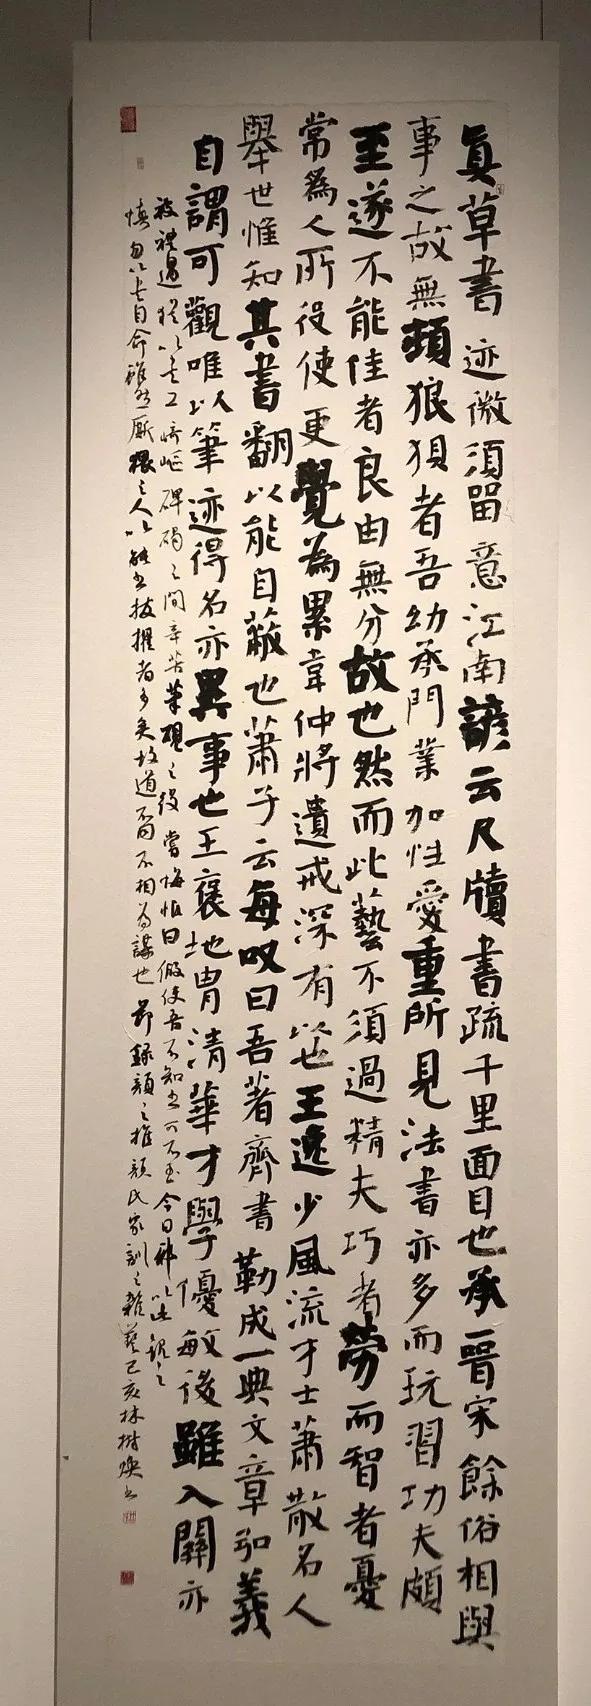 真草書迹微須留意江南諺云尺牘書疏千里面目也承晉宋餘俗相與
事之故無頓狼狽者吾幼承門業加性愛重所見法書亦多而玩習功夫頗
至遂不能佳者良由無分故也然而此藝不須過精夫巧者勞而智者憂
常爲人所役使更覺為累韋仲將遺戒深有以也王逸少風流才士蕭散名人
舉世惟知其書翻以能自蔽也蕭子云每歎曰吾著齊書勒成一典文章弘義
自謂可觀唯以筆迹得名亦異事也王襃地胄清華才學優敏後雖入關亦
被禮遇猶以書工崎嶇碑碣之間辛苦筆硯之役嘗悔恨曰假使吾不知書可不至今日邪以此觀之
慎勿以書自命雖然厮猥之人以能書拔擢者多矣故道不同不相為謀也 節錄顏之推顏氏家訓之雜藝己亥林樹煥書